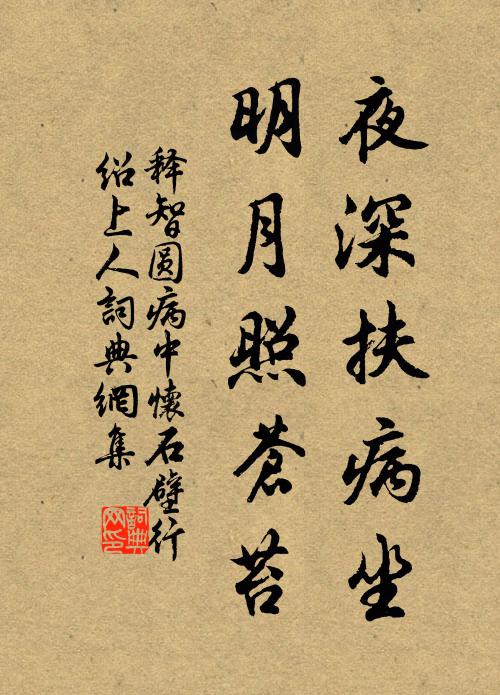 夜深扶病坐
明月照蒼苔
释智圆病中懷石壁行
绍上人詞典網集
詞典
网印